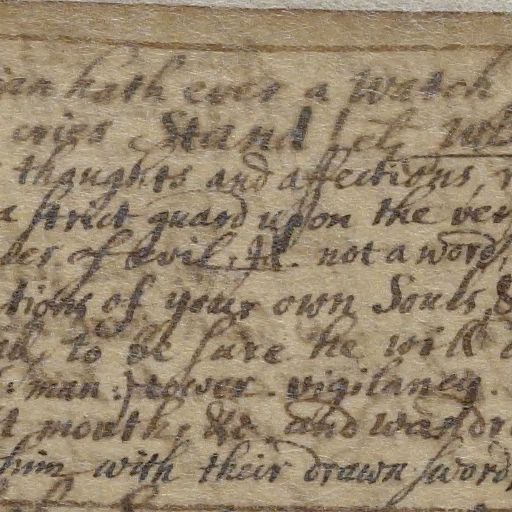 ian hath ever a watch
cries Stand let
thoughts and affections,
a strict guard upon the ver
ber of evil, &. not a word,
tions of your own Souls, &
to be sure he will
man: tower. vigilancy.
mouth, &c. and wand
him with their drawn sword